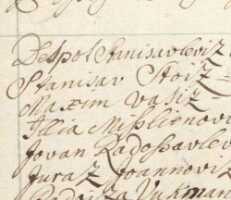 Despot Stanisavleviz
Stanisav Stoiz
Maxim Vasiz
Illia Misslienovi
Jovan Radosavlev
Juraz Joannovit
Vukman